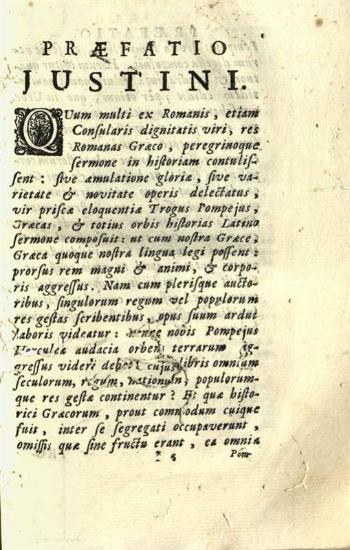 PRÆFATIO
JUSTINI.
QUum multi ex Romanis, etiam
Consularis dignitatis viri, res
Romanas Græco, peregrinoque
sermone in historiam contulis-
sent: sive æmulatione gloriæ, sive va-
rietate & novitate operis delectatus,
vir priscæ eloquentiæ Trogus Pompejus,
Græcas, & totius orbis historias Latino
sermone composuit: ut cum nostra Græce,
Græca quoque nostra lingua legi possent:
prorsus rem magni & animi, & corpo-
ris aggressus. Nam cum plerisque aucto-
ribus, singulorum regum vel populorum
res gestas scribentibus, opus suum ardui
laboris videatur: nobis Pompejus
Herculea audacia orbem terrarum ag-
gressus videri debet, cujus libris omnium
seculorum, regum, nationum, populorum-
que res gestæ continentur? Et quæ histo-
rici Græcorum, prout commodum cuique
fuit, inter se segregati occupaverunt,
omissis quæ sine fructu erant, ea omnia
Pom-